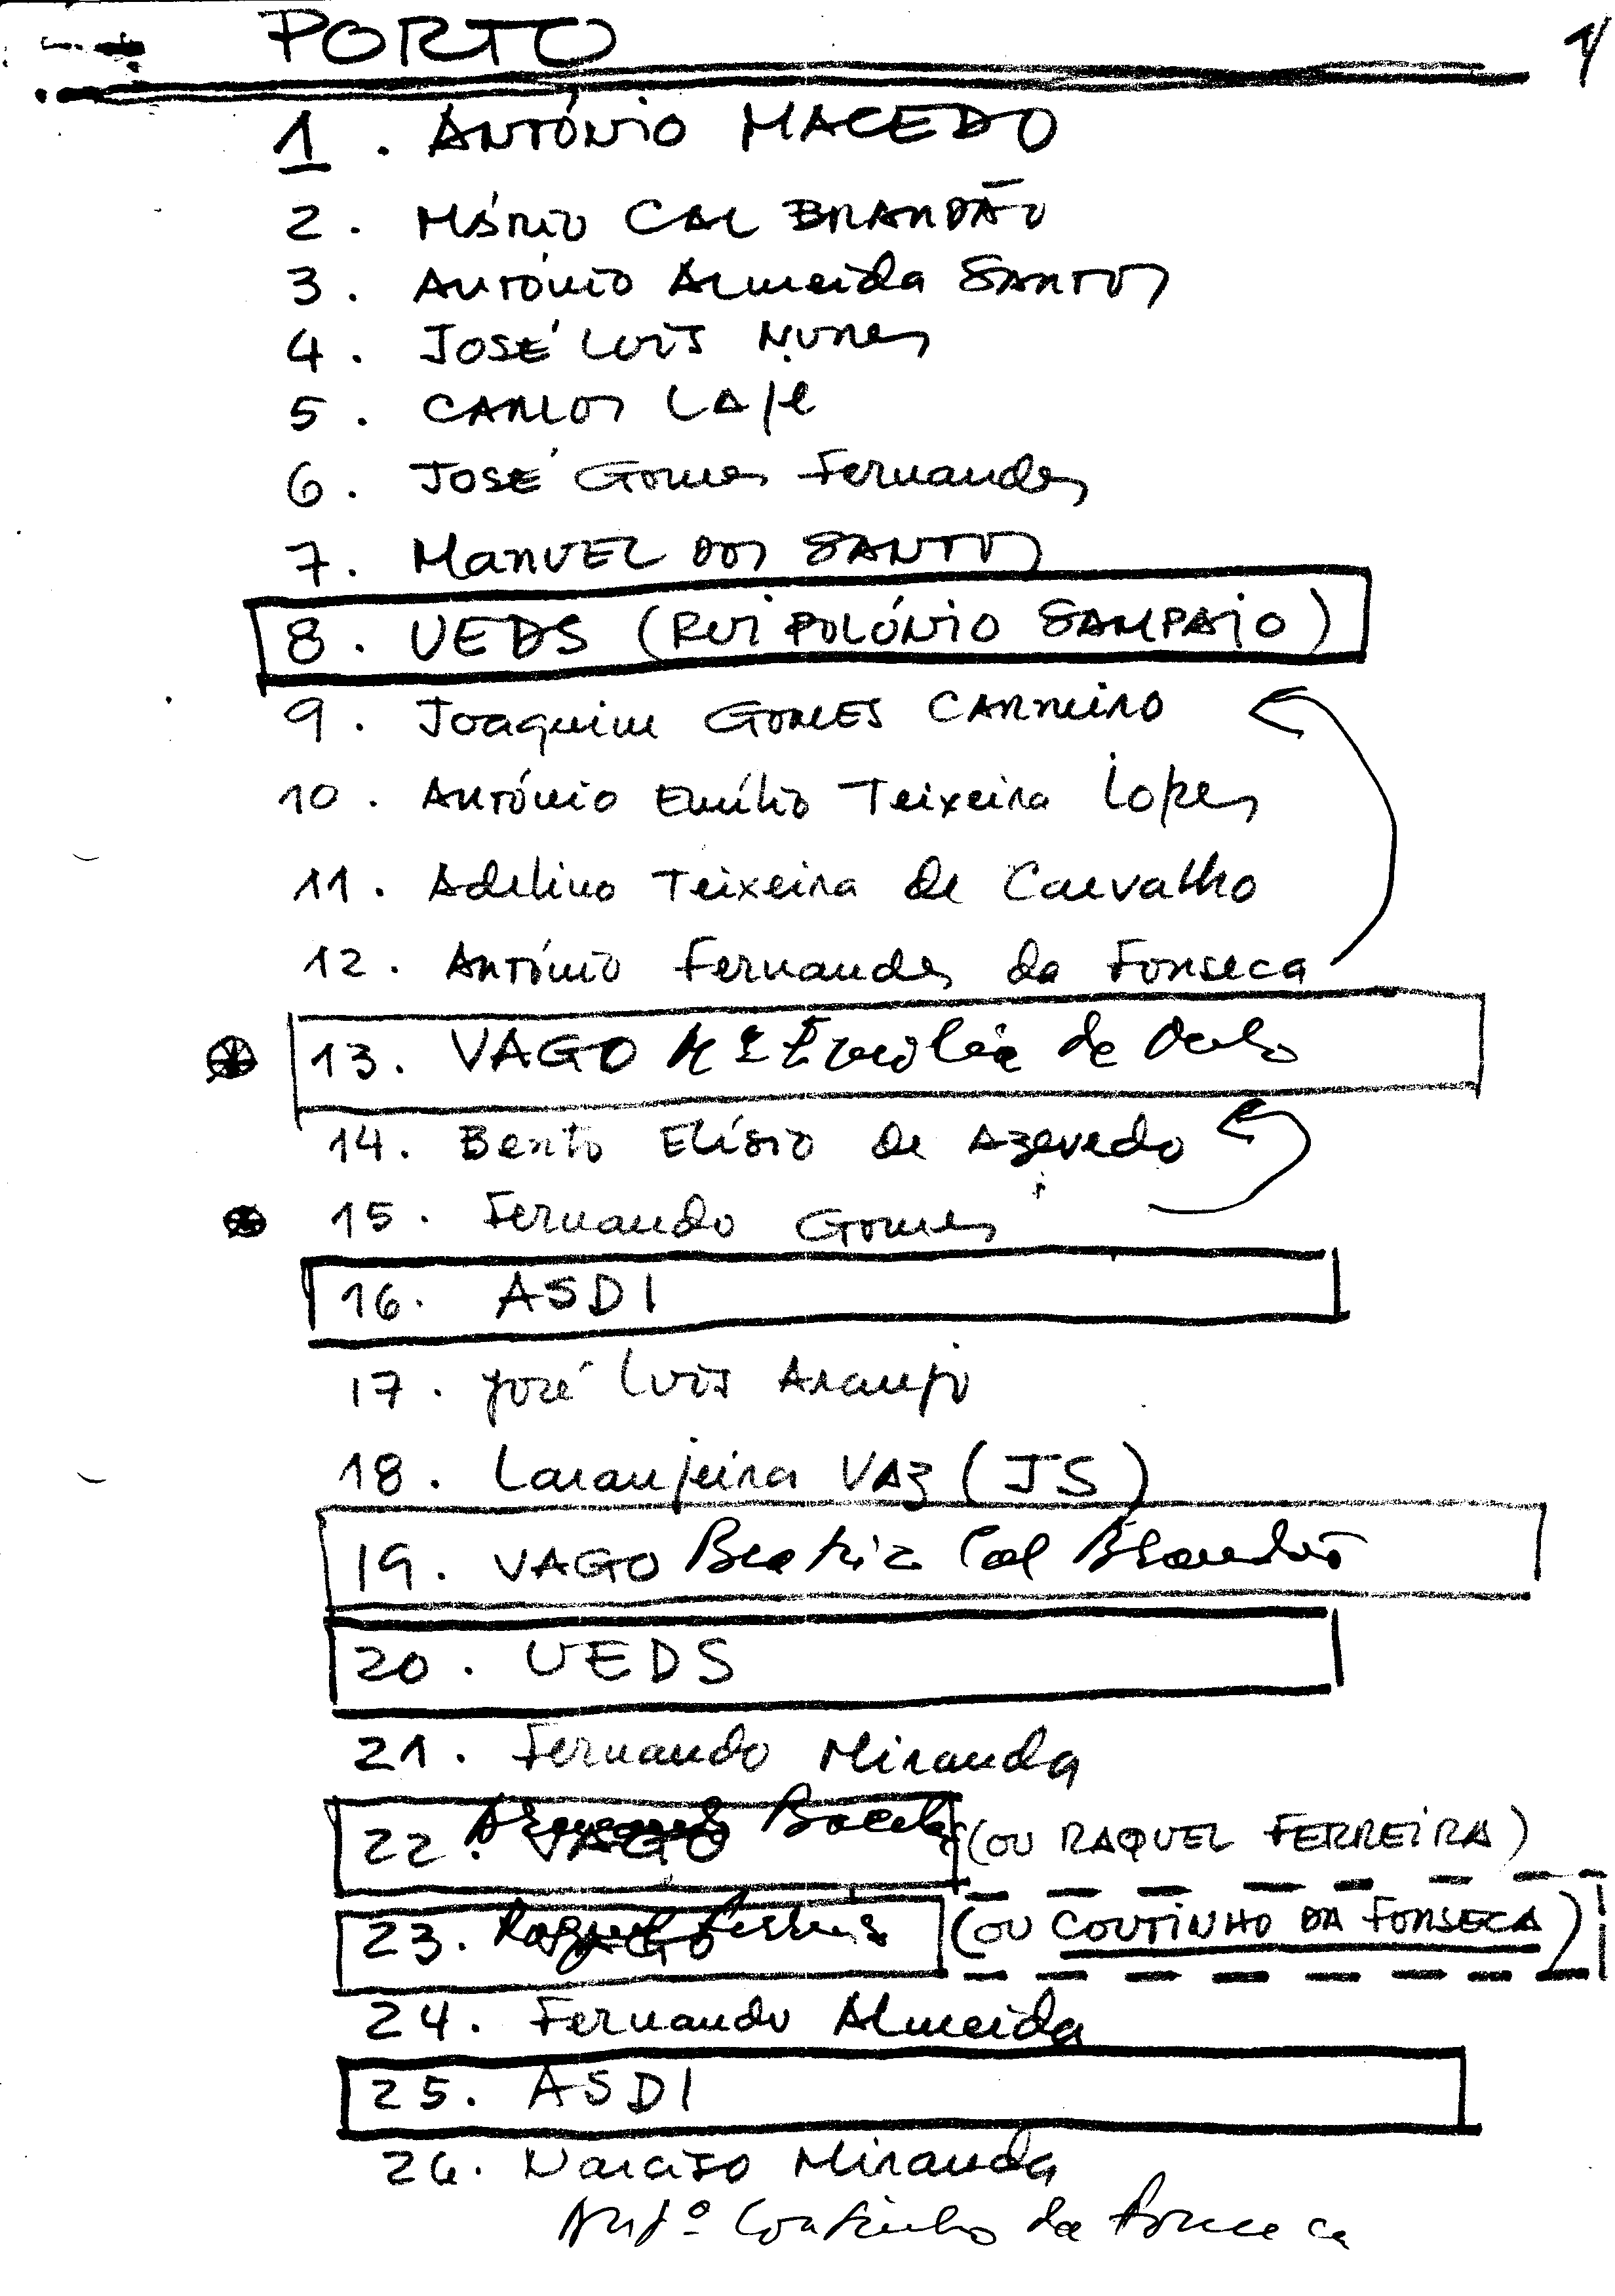 PORTO
1/
1. ANTÓNIO MACEDO
2. MÁRIO CAL BRANDÃO
3. António Almeida SANTOS
4. JOSÉ LUÍS NUNES
5. CARLOS LAJE
6. JOSÉ Gomes Fernandes
7. MANUEL DOS SANTOS
8. UEDS (RUI POLÓNIO SAMPAIO)
9. Joaquim GOMES CARNEIRO
10. António Emílio Teixeira Lopes
11. Adelino Teixeira de Carvalho
12. António Fernandes da Fonseca
13. VAGO Mª Emília de
14. Bento Elísio de Azevedo
15. Fernando Gomes
16. ASDI
17. José Luís Araujo
18. Laranjeira VAZ (JS)
19. VAGO Beatriz Cal Brandão
20. UEDS
21. Fernando Miranda
22. VAGO (OU RAQUEL FERREIRA)
23. Raquel Ferreira (OU COUTINHO DA FONSECA)
24. Fernando Almeida
25. ASDI
26. Narciso Miranda
Coutinho da Fonseca